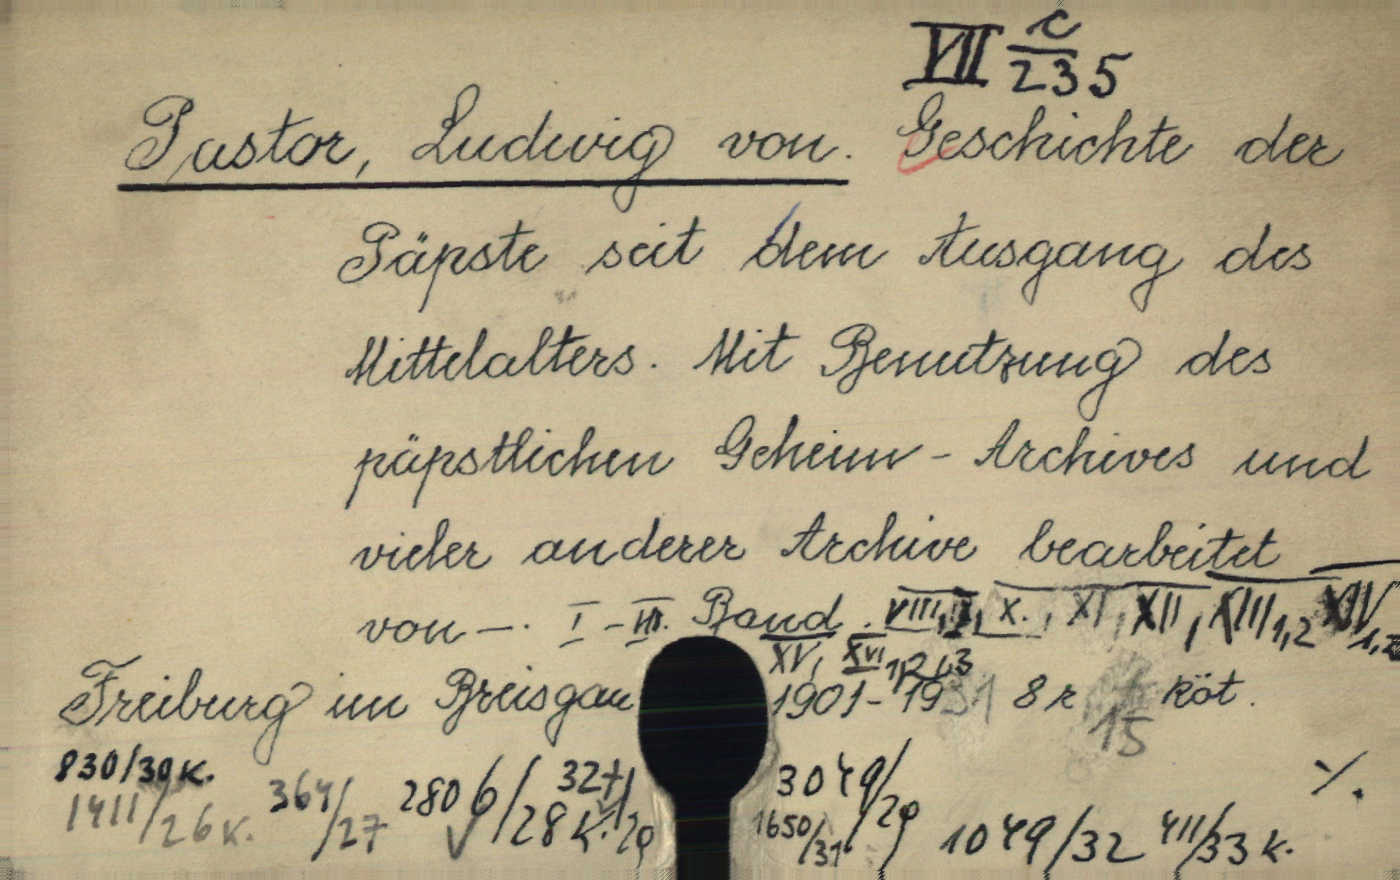 VII c/235
Pastor, Ludwig von. Geschichte der
Päpste seit dem Ausgang des
Mittelalters. Mit Benutzung des
päpstlichen Geheim-Archives und
vieler anderer Archive bearbeitet
von —. I-III. Band. VIII, IX, X., XI, XII, XIII 1,2 XIV 1,2
XV, XVI 1,2 u. 3
Freiburg im Breisgau 1901-1931 8r 15 köt.
830/39 K. 364/27 2806/28 K. 3049/29 ./.
1411/26 K. 1650/31 1049/32 411/33 K.